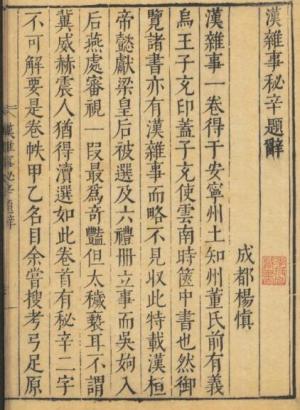 漢雜事秘辛題辭
成都楊慎
漢雜事一卷得于安寧州土知州董氏前有義
烏王子充印蓋子充使雲南時篋中書也然御
覽諸書亦有漢雜事而略不見收此特載漢桓
帝懿獻梁皇后被選及六禮冊立事而吳姁入
后燕處審視一段最為奇艷但太穢褻耳不謂
冀威赫震人猶得瀆選如此卷首有秘辛二字
不可解要是卷帙甲乙名目余嘗搜考弓足原
漢雜事秘辛題辭